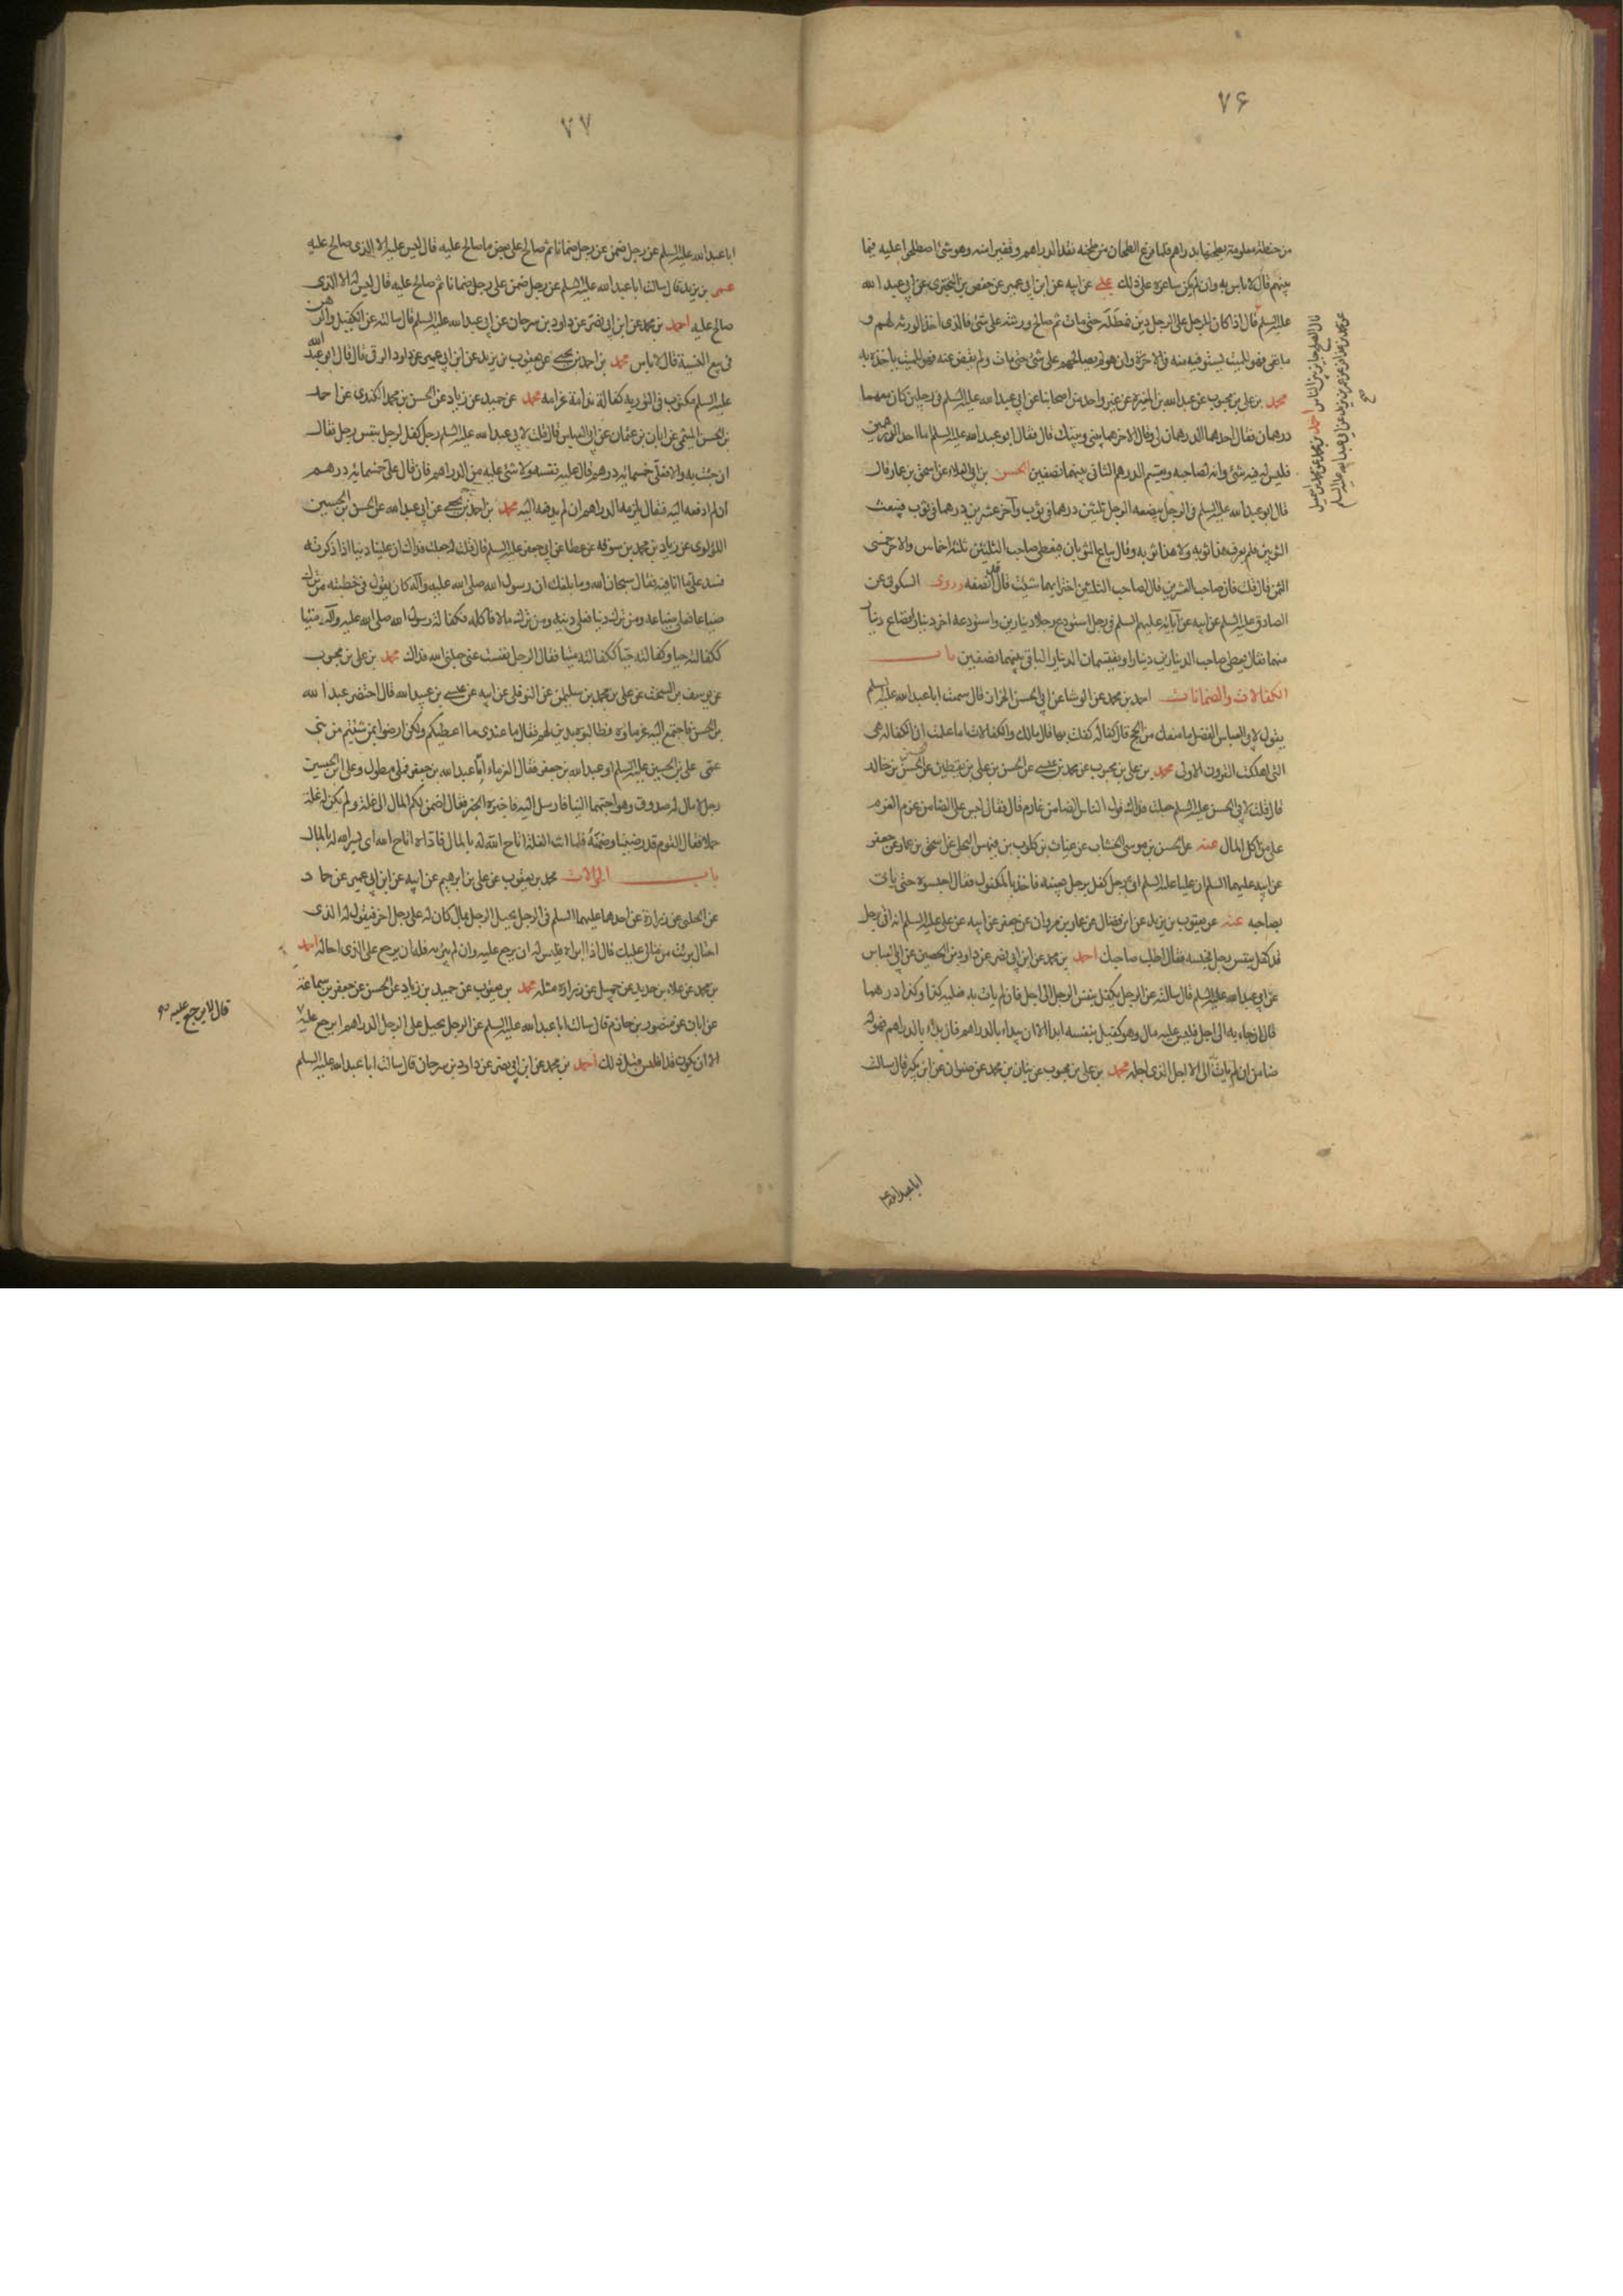 ٧۶
من حنطة معلومة يطحنها بدراهم فلما فرغ الطحان من طحنه نقده الدراهم وقفيزا منه وهو شئ اصطلحوا عليه فيما
بينهم قال لا باس به وان لم يكن ساعره على ذلك على عن ابيه عن ابن ابي عمير عن حفص بن البختري عن ابي عبد الله
عليه السلم قال اذا كان للرجل على الرجل دين فمطله حتى مات ثم صالح ورثته على شئ فالذي اخذ الورثه لهم و
ما بقي فهو للميت يستوفيه منه في الاخرة وان هو لم يصالحهم على شئ حتى مات ولم يقض عنه فهو للميت ياخذه به
محمد بن على بن محبوب عن عبد الله بن المغيرة عن غير واحد من اصحابنا عن ابي عبد الله عليه السلم في رجلين كان معهما
درهمان فقال احدهما الدرهمان لي وقال الاخر هما بيني وبينك قال فقال ابو عبد الله عليه السلم اما احد الدرهمين
فليس له فيه شئ وانه لصاحبه ويقسم الدرهم الثاني بينهما نصفين الحسن بن ابي العلاء عن اسحق بن عمار قال
قال ابو عبد الله عليه السلم في الرجل يبضعه الرجل ثلثين درهما في ثوب وآخر عشرين درهما في ثوب فيبعث
الثوبين فلم يعرف هذا ثوبه ولا هذا ثوبه قال يباع الثوبان فيعطى صاحب الثلثين ثلثة اخماس والاخر خمسي
الثمن قال قلت فان صاحب العشرين قال لصاحب الثلثين اختر ايهما شئت قال قد انصفه وروى السكوني عن
الصادق عليه السلم عن ابيه عن آبائه عليهم السلم في رجل استودع رجلا دينارين واستودعه اخر دينارا فضاع دينار
منهما فقال يعطى صاحب الدينارين دينارا ويقتسمان الدينار الباقي بينهما نصفين باب
الكفالات والضمانات احمد بن محمد عن الوشا عن ابي الحسن الخزاز قال سمعت ابا عبد الله عليه السلم
يقول لابي العباس الفضل ما منعك من الحج قال كفالة كفلت بها قال مالك والكفالات اما علمت ان الكفالة هي
التي اهلكت القرون الاولى محمد بن على بن محبوب عن محمد بن عيسى عن الحسن بن على بن يقطين عن الحسين بن خالد
قال قلت لابي الحسن عليه السلم جعلت فداك قول الناس الضامن غارم قال فقال ليس على الضامن غرم الغرم
على من اكل المال عنه عن الحسن بن موسى الخشاب عن غياث بن كلوب بن فيهس البجلي عن اسحق بن عمار عن جعفر
عن ابيه عليهما السلم ان عليا عليه السلم اتي برجل كفل برجل بعينه فاخذ بالمكفول فقال احبسوه حتى ياتي
بصاحبه عنه عن يعقوب بن يزيد عن ابن فضال عن عمار بن مروان عن جعفر عن ابيه عن على عليه السلم انه اتي برجل
قد كفل بنفس رجل فحبسه فقال اطلب صاحبك احمد بن محمد عن ابن ابي نصر عن داود بن الحصين عن ابي العباس
عن ابي عبد الله عليه السلم قال سالته عن الرجل يكفل بنفس الرجل الى اجل فان لم يات به فعليه كذا وكذا درهما
قال ان جاء به الى اجل فليس عليه مال وهو كفيل بنفسه ابدا الا ان يبدأ بالدراهم فان بدأ بالدراهم فهو له
ضامن ان لم يات الى الاجل الذي اجله محمد بن على بن محبوب عن بنان بن محمد عن صفوان عن ابن بكير قال سالت
قال الصلح جايز بين الناس احمد بن محمد عن محمد بن اسمعيل
عن محمد بن عذافر عن عمر بن يزيد عن ابي عبد الله عليه السلم
صح
ابا عبد الله
٧٧
ابا عبد الله عليه السلم عن رجل ضمن عن رجل ضمانا ثم صالح على بعض ما صالح عليه قال ليس عليه الا الذي صالح عليه
عمر بن يزيد قال سالت ابا عبد الله عليه السلم عن رجل ضمن على رجل ضمانا ثم صالح عليه قال ليس له الا الذي
صالح عليه احمد بن محمد عن ابن ابي نصر عن داود بن سرحان عن ابي عبد الله عليه السلم قال سالته عن الكفيل والرهن
في بيع النسية قال لا باس محمد بن احمد بن يحيى عن يعقوب بن يزيد عن ابن ابي عمير عن داود الرقي قال قال ابو عبد الله
عليه السلم مكتوب في التورية كفالة ندامة غرامه محمد عن حميد عن زياد عن الحسن بن محمد الكندى عن احمد
بن الحسن الميثمي عن ابان بن عثمان عن ابي العباس قال قلت لابي عبد الله عليه السلم رجل كفل لرجل بنفس رجل فقال
ان جئت به والا فعلي خمسمائة درهم قال عليه نفسه ولا شئ عليه من الدراهم فان قال على خمسمائة درهم
ان لم ادفعه اليه فقال يلزمه الدراهم ان لم يدفعه اليه محمد بن احمد بن يحيى عن ابي عبد الله عن الحسن بن الحسين
اللؤلوى عن زياد بن محمد بن سوقه عن عطا عن ابي جعفر عليه السلم قال قلت له جعلت فداك ان علينا دينا اذا ذكرته
فسد على ما انا فيه فقال سبحان الله وما بلغك ان رسول الله صلى الله عليه وآله كان يقول في خطبته من ترك
ضياعا فعلى ضياعه ومن ترك دينا فعلى دينه ومن ترك مالا فاكله فكفالة رسول الله صلى الله عليه وآله ميتا
ككفالته حيا وكفالته حيا ككفالته ميتا فقال الرجل نفست عني جعلني الله فداك محمد بن على بن محبوب
عن يوسف بن السخت عن على بن محمد بن سليمن عن النوفلي عن ابيه عن عيسى بن عبيد الله قال احتضر عبد الله
بن الحسن فاجتمع اليه غرماؤه فطالبوه بدين لهم فقال ما عندي ما اعطيكم ولكن ارضوا بمن شئتم من بني
عمى على بن الحسين عليه السلم او عبد الله بن جعفر فقال الغرماء اما عبد الله بن جعفر فملي مطول وعلى بن الحسين
رجل لا مال له صدوق وهو احبهما الينا فارسل اليه فاخبره الخبر فقال اضمن لكم المال الى غلة ولم يكن له غلة
تجملا فقال القوم قد رضينا وضمنه فلما اتت الغلة اتاح الله له بالمال فاداه اتاح الله اي يسر الله له بالمال
باب الحوالات محمد بن يعقوب عن على بن ابرهيم عن ابيه عن ابن ابي عمير عن حماد
عن الحلبي عن زرارة عن احدهما عليهما السلم في الرجل يحيل الرجل بمال كان له على رجل اخر فيقول له الذي
احتال برئت من مالي عليك قال اذا ابراه فليس له ان يرجع عليه وان لم يبرئه فله ان يرجع على الذي احاله احمد
بن محمد عن على بن حديد عن جميل عن زرارة مثله محمد بن يعقوب عن حميد بن زياد عن الحسن عن جعفر بن سماعة
عن ابان عن منصور بن حازم قال سالت ابا عبد الله عليه السلم عن الرجل يحيل على الرجل الدراهم ايرجع عليه
الا ان يكون قد افلس قبل ذلك احمد بن محمد عن ابن ابي نصر عن داود بن سرحان قال سالت ابا عبد الله عليه السلم
قال لا يرجع عليه